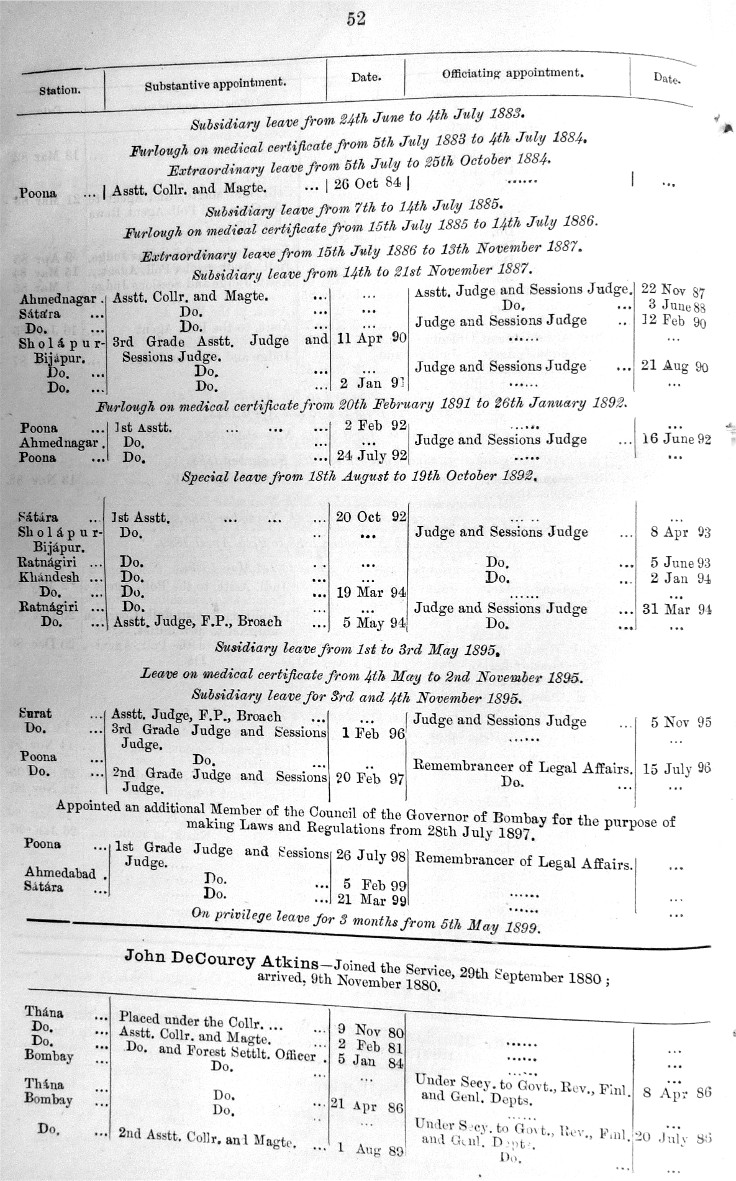 52
Station. Substantive appointment. Date. Officiating appointment. Date.
Subsidiary leave from 24th June to 4th July 1883.
Furlough on medical certificate from 5th July 1883 to 4th July 1884.
Extraordinary leave from 5th July to 25th October 1884.
Poona ... Asstt. Collr. and Magte. ... 26 Oct 84 ...... ...
Subsidiary leave from 7th to 14th July 1885.
Furlough on medical certificate from 15th July 1885 to 14th July 1886.
Extraordinary leave from 15th July 1886 to 13th November 1887.
Subsidiary leave from 14th to 21st November 1887.
Ahmednagar . Asstt. Collr. and Magte. ... ... Asstt. Judge and Sessions Judge. 22 Nov 87
Sátára ... Do. ... ... Do. ... 3 June 88
Do. ... Do. ... ... Judge and Sessions Judge .. 12 Feb 90
Sholápur- 3rd Grade Asstt. Judge and 11 Apr 90 ...... ...
Bijápur. Sessions Judge.
Do. ... Do. ... ... Judge and Sessions Judge ... 21 Aug 90
Do. ... Do. ... 2 Jan 91 ...... ...
Furlough on medical certificate from 20th February 1891 to 26th January 1892.
Poona ... 1st Asstt. ... ... ... 2 Feb 92 ...... ...
Ahmednagar . Do. ... ... Judge and Sessions Judge ... 16 June 92
Poona ... Do. ... 24 July 92 ...... ...
Special leave from 18th August to 19th October 1892.
Sátára ... 1st Asstt. ... ... ... 20 Oct 92 ...... ...
Sholápur- Do. .. ... Judge and Sessions Judge ... 8 Apr 93
Bijápur.
Ratnágiri ... Do. .. ... Do. ... 5 June 93
Khándesh ... Do. ... ... Do. ... 2 Jan 94
Do. ... Do. ... 19 Mar 94 ...... ...
Ratnágiri ... Do. ... ... Judge and Sessions Judge ... 31 Mar 94
Do. ... Asstt. Judge, F.P., Broach ... 5 May 94 Do. ... ...
Susidiary leave from 1st to 3rd May 1895.
Leave on medical certificate from 4th May to 2nd November 1895.
Subsidiary leave for 3rd and 4th November 1895.
Surat ... Asstt. Judge, F.P., Broach ... ... Judge and Sessions Judge ... 5 Nov 95
Do. ... 3rd Grade Judge and Sessions 1 Feb 96 ...... ...
Judge.
Poona ... Do. ... .. Remembrancer of Legal Affairs. 15 July 96
Do. ... 2nd Grade Judge and Sessions 20 Feb 97 Do. ... ...
Judge.
Appointed an additional Member of the Council of the Governor of Bombay for the purpose of
making Laws and Regulations from 28th July 1897.
Poona ... 1st Grade Judge and Sessions 26 July 98 Remembrancer of Legal Affairs. ...
Judge.
Ahmedabad . Do. ... 5 Feb 99 ...... ...
Sátára ... Do. ... 21 Mar 99 ...... ...
On privilege leave for 3 months from 5th May 1899.
John DeCourcy Atkins—Joined the Service, 29th September 1880 ;
arrived, 9th November 1880.
Thána ... Placed under the Collr. ... ... 9 Nov 80 ...... ...
Do. ... Asstt. Collr. and Magte. ... 2 Feb 81 ...... ...
Do. ... Do. and Forest Settlt. Officer . 5 Jan 84 ...... ...
Bombay ... Do. ... Under Secy. to Govt., Rev., Finl. 8 Apr 86
and Genl. Depts.
Thána ... Do. ... 21 Apr 86 ...... ...
Bombay ... Do. Under Secy. to Govt., Rev., Finl. 20 July 86
and Genl. Depts.
Do. ... 2nd Asstt. Collr. and Magte. ... 1 Aug 89 Do. ... ...